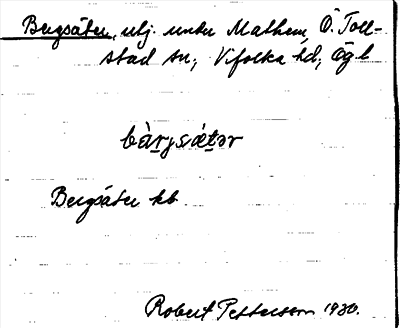 Bergsäter, utj. under Mathem, Ö. Toll-
stad sn, Vifolka hd, Ög. l
bàrjsǽtər
Bergsäter kb
Robert Pettersson 1930.